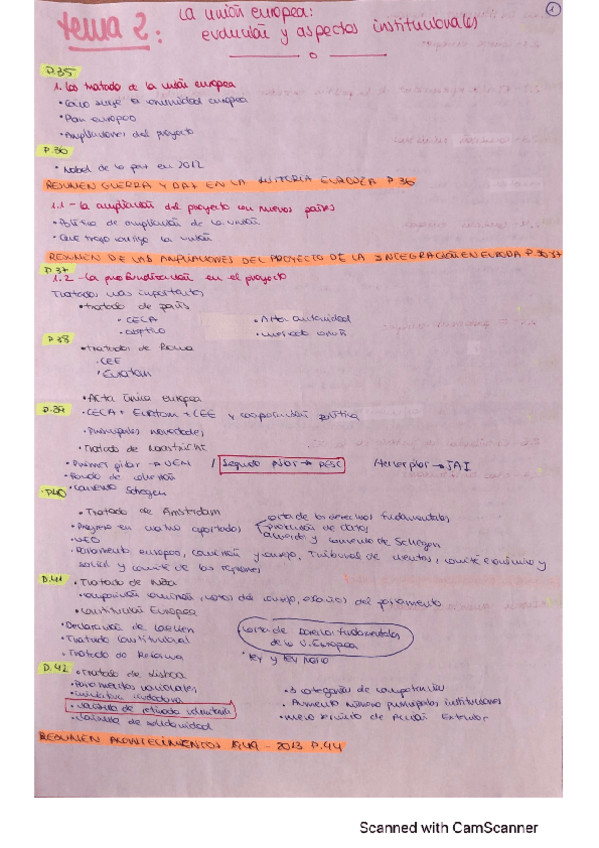 Tema 2: La unión europea:
evolución y aspectos institucionales
1
P.35
1. Los tratado de la unión europea
• Cómo surge la comunidad europea
• Plan europeo
• Ampliaciones del proyecto
P.36
• Nobel de la paz en 2012
RESUMEN GUERRA Y PAZ EN LA HISTORIA EUROPEA P.36
1.1 - La ampliación del proyecto con nuevos países
• Política de ampliación de la unión
• Que trajo consigo la unión
RESUMEN DE LAS AMPLIACIONES DEL PROYECTO DE LA INTEGRACIÓN EN EUROPA P.36-37
P.37
1.2 - La profundización en el proyecto
Tratados más importantes
• tratado de parís
• CECA • Alta autoridad
• objetivo • mercado común
P.38
• Tratados de Roma
• CEE
• Euratom
• Acta única europea
P.39
• CECA + Euratom + CEE y cooperación política
• Principales novedades
• Tratado de Maastricht
• Primer pilar → UEM / Segundo pilar → PESC / tercer pilar → JAI
• Fondo de cohesión
P.40
• Convenio Schegen
• Tratado de Amsterdam
• Progreso en cuatro apartados
carta de los derechos fundamentales
protección de datos
acuerdo y convenio de Schegen
• UEO
• Parlamento europeo, comisión y consejo, Tribunal de cuentas, comité económico y
social y comité de las regiones
P.41
• Tratado de Niza
• composición comisión, votos del consejo, escaños del parlamento
• Constitución Europea
• Declaración de Laeken
• Tratado Constitucional
• Tratado de Reforma
carta de Derechos fundamentales
de la U. Europea
• ley y ley marco
P.42
• Tratado de Lisboa
• Parlamentos nacionales
• iniciativa ciudadana
• cláusula de retirada voluntaria
• cláusula de solidaridad
• 3 categorías de competencias
• Aumento número principales instituciones
• nuevo servicio de Acción Exterior
RESUMEN ACONTECIMIENTOS 1949 - 2013 P.44
Scanned with CamScanner